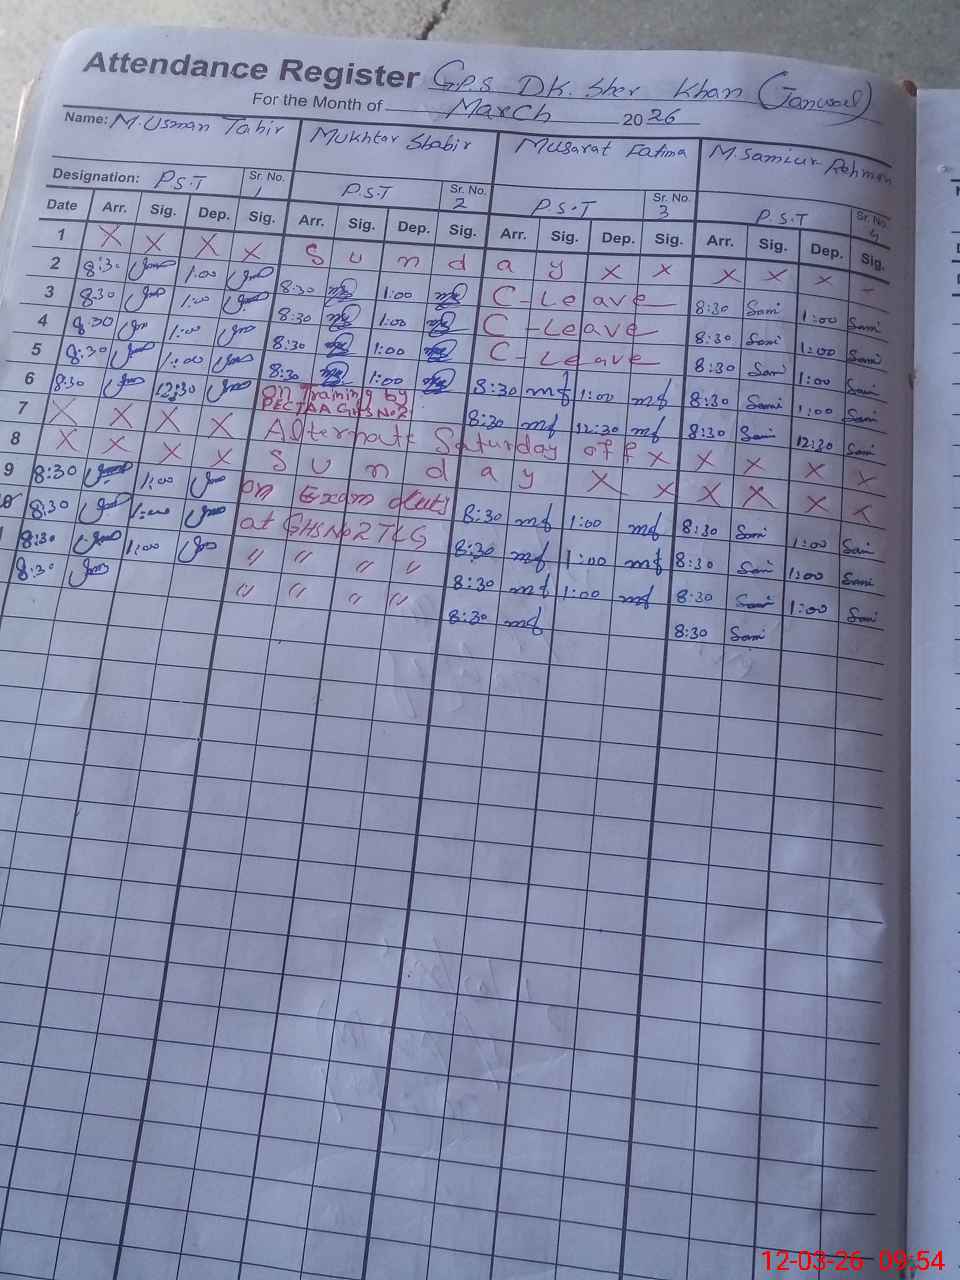 Attendance Register G.P.S DK. Sher Khan (Janwal)
For the Month of March 2026
Name: M. Usman Tahir Mukhtar Shabir Musarat Fatima M. Samiur Rehman
Designation: P.S.T Sr. No. 1 P.S.T Sr. No. 2 P.S.T Sr. No. 3 P.S.T Sr. No. 4
Date Arr. Sig. Dep. Sig. Arr. Sig. Dep. Sig. Arr. Sig. Dep. Sig. Arr. Sig. Dep. Sig.
1 X X X X S u n d a y x x x x x
2 8:30 1:00 8:30 1:00 C-Leave 8:30 Sami 1:00 Sami
3 8:30 1:00 8:30 1:00 C-Leave 8:30 Sami 1:00 Sami
4 8:30 1:00 8:30 1:00 C-Leave 8:30 Sami 1:00 Sami
5 8:30 1:00 8:30 1:00 8:30 mf 1:00 mf 8:30 Sami 1:00 Sami
6 8:30 12:30 On Training by PECTAA GHS No 2 8:30 mf 12:30 mf 8:30 Sami 12:30 Sami
7 X X X X Alternate Saturday off x x x x x
8 X X X X S u n d a y X x X X x x
9 8:30 1:00 on Exam duty 8:30 mf 1:00 mf 8:30 Sami 1:00 Sami
10 8:30 1:00 at GHS No 2 TLG 8:30 mf 1:00 mf 8:30 Sami 1:00 Sami
8:30 1:00 " " " " 8:30 mf 1:00 mf 8:30 Sami 1:00 Sami
8:30 " " " " 8:30 mf 8:30 Sami
12-03-26 09:54